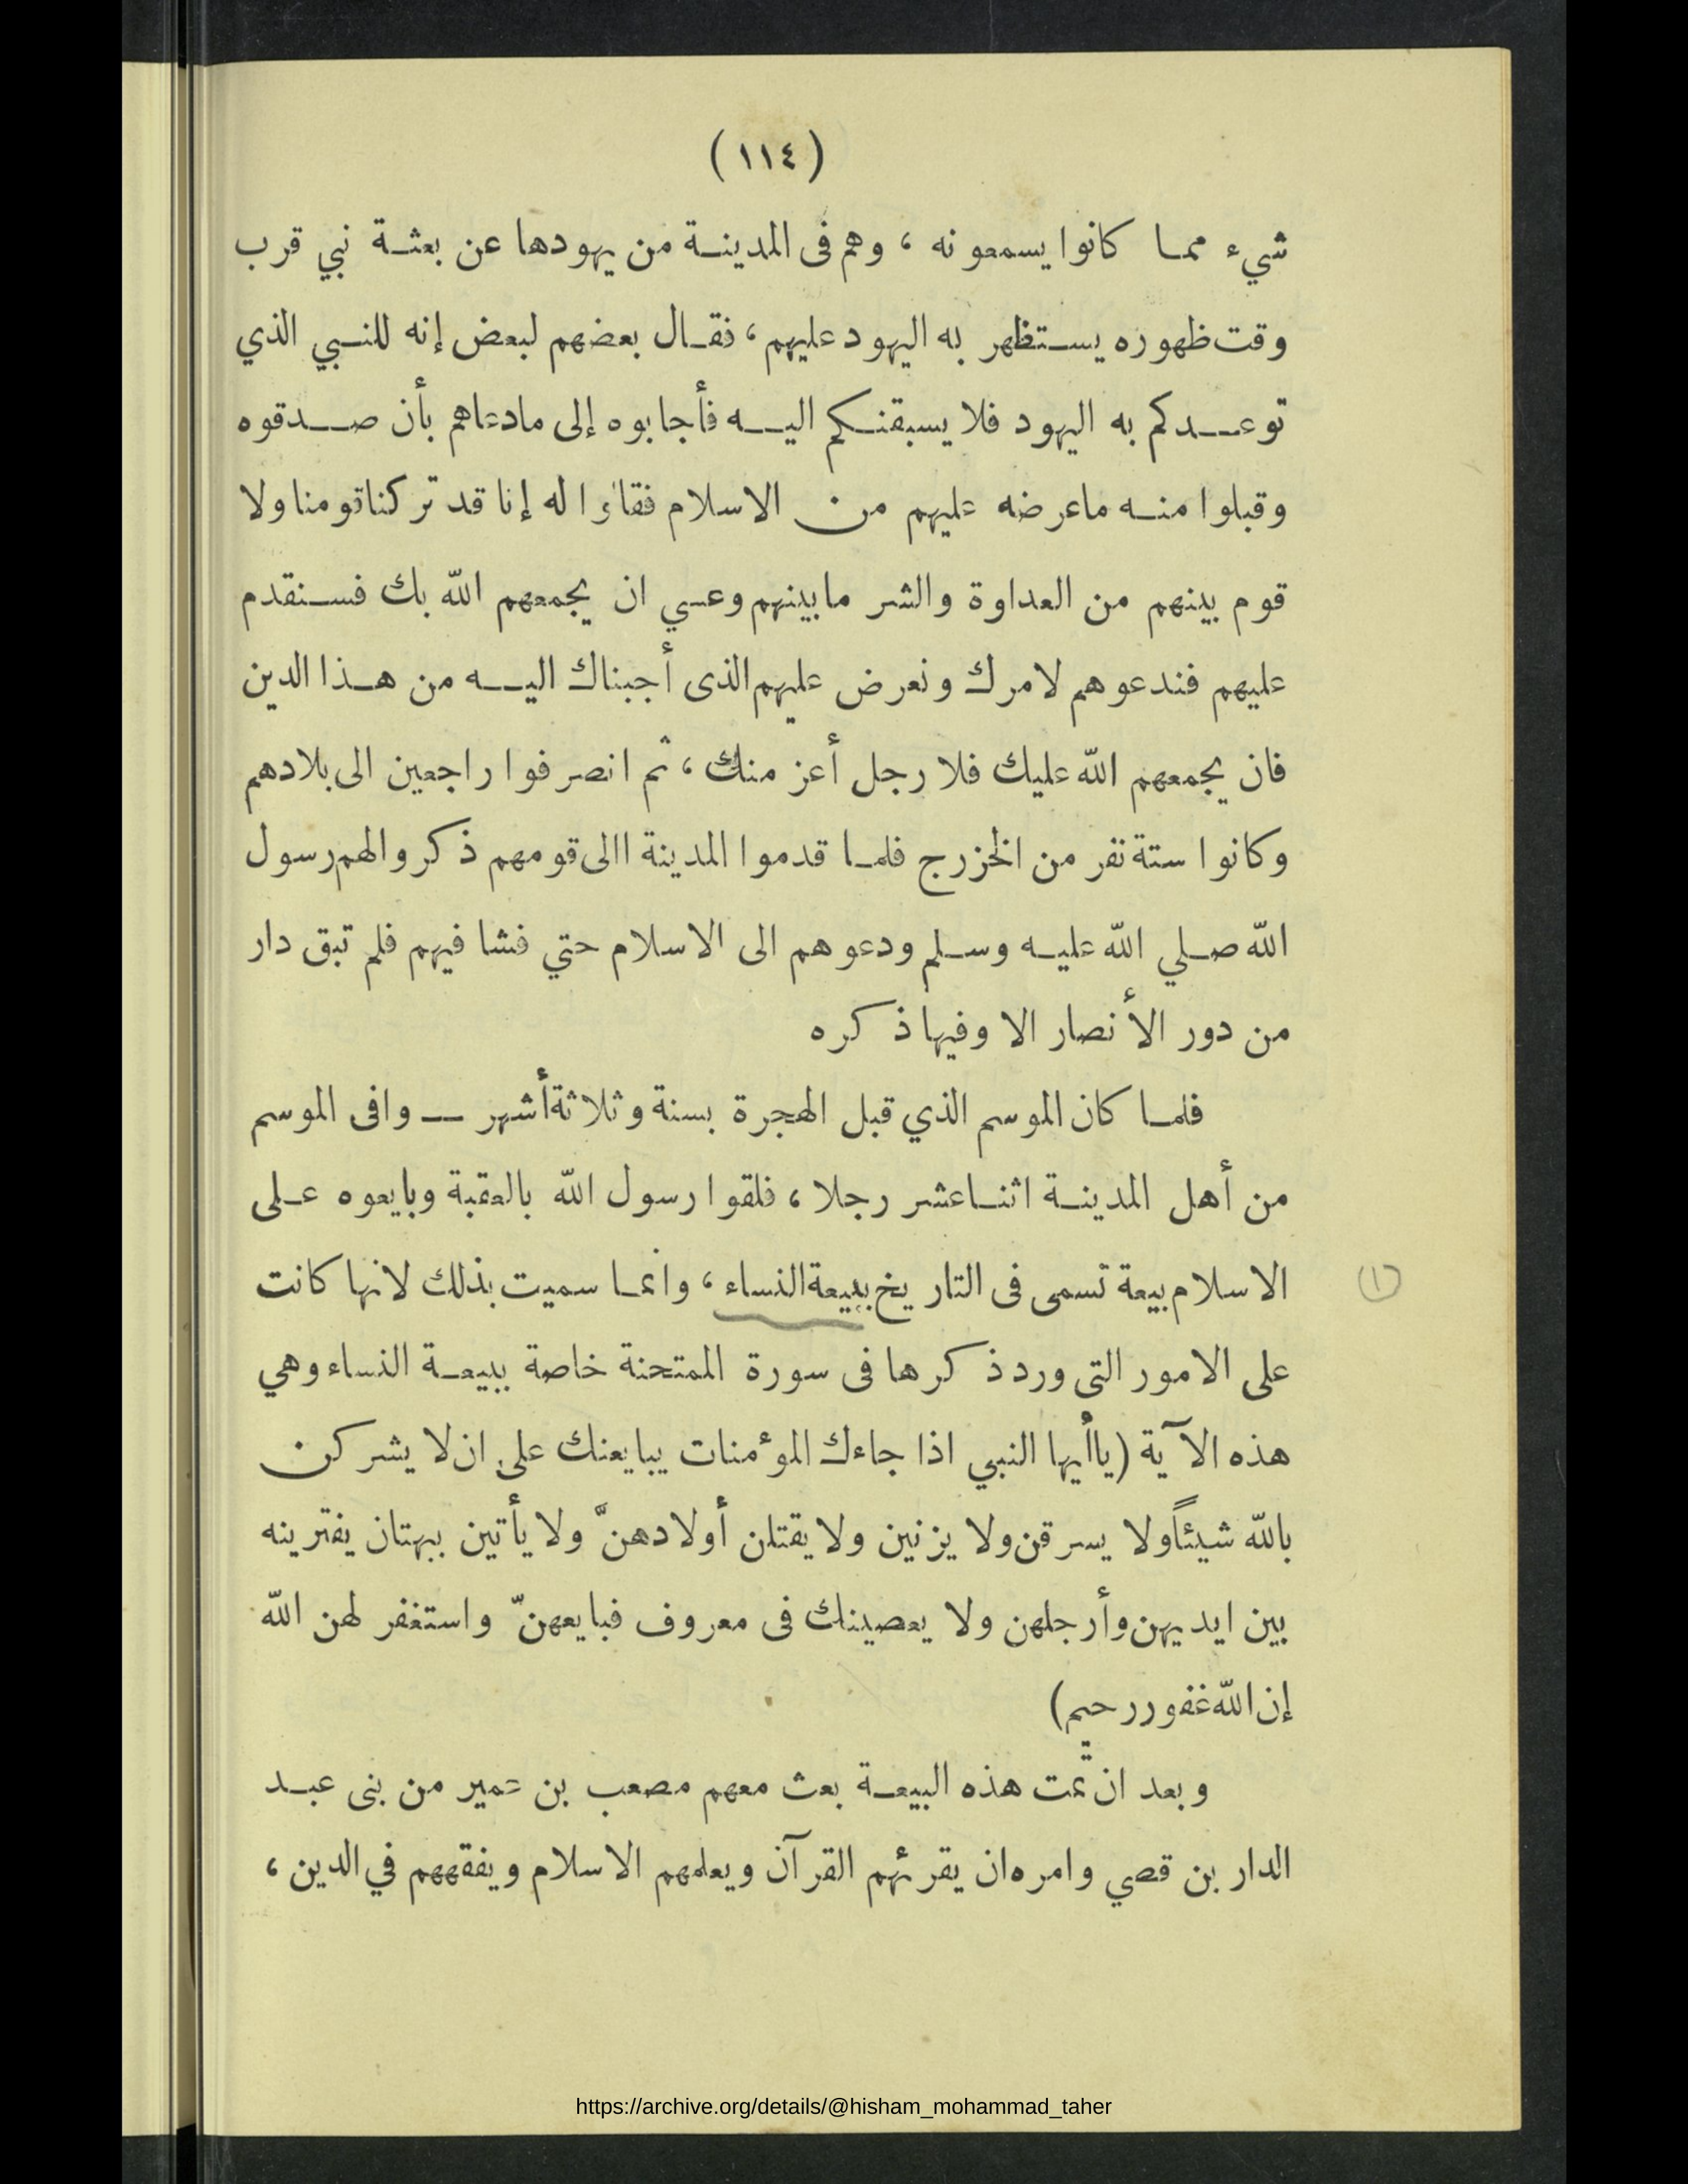 (١١٤)
شيء مما كانوا يسمعونه ، وهم فى المدينة من يهودها عن بعثة نبي قرب
وقت ظهوره يستظهر به اليهود عليهم ، فقال بعضهم لبعض إنه للنبي الذي
توعدكم به اليهود فلا يسبقنكم اليه فأجابوه إلى مادعاهم بأن صدقوه
وقبلوا منه ماعرضه عليهم من الاسلام فقالوا له إنا قد تركنا قومنا ولا
قوم بينهم من العداوة والشر مابينهم وعسي ان يجمعهم الله بك فسنقدم
عليهم فندعوهم لامرك ونعرض عليهم الذى أجبناك اليه من هذا الدين
فان يجمعهم الله عليك فلا رجل أعز منك ، ثم انصرفوا راجعين الى بلادهم
وكانوا ستة نفر من الخزرج فلما قدموا المدينة االى قومهم ذكروا لهم رسول
الله صلي الله عليه وسلم ودعوهم الى الاسلام حتي فشا فيهم فلم تبق دار
من دور الأنصار الا وفيها ذكره
فلما كان الموسم الذي قبل الهجرة بسنة وثلاثة أشهر — وافى الموسم
من أهل المدينة اثنا عشر رجلا ، فلقوا رسول الله بالعقبة وبايعوه على
الاسلام بيعة تسمى فى التاريخ ببيعة النساء ، وانما سميت بذلك لانها كانت
(١)
على الامور التى ورد ذكرها فى سورة الممتحنة خاصة ببيعة النساء وهي
هذه الآية (ياأيها النبي اذا جاءك المؤمنات يبايعنك على ان لا يشركن
بالله شيئاً ولا يسرقن ولا يزنين ولا يقتلن أولادهنّ ولا يأتين ببهتان يفترينه
بين ايديهن وأرجلهن ولا يعصينك فى معروف فبايعهنّ واستغفر لهن الله
إن الله غفور رحيم)
وبعد ان تمّت هذه البيعة بعث معهم مصعب بن عمير من بنى عبد
الدار بن قصي وامره ان يقرئهم القرآن ويعلمهم الاسلام ويفقههم في الدين ،
https://archive.org/details/@hisham_mohammad_taher